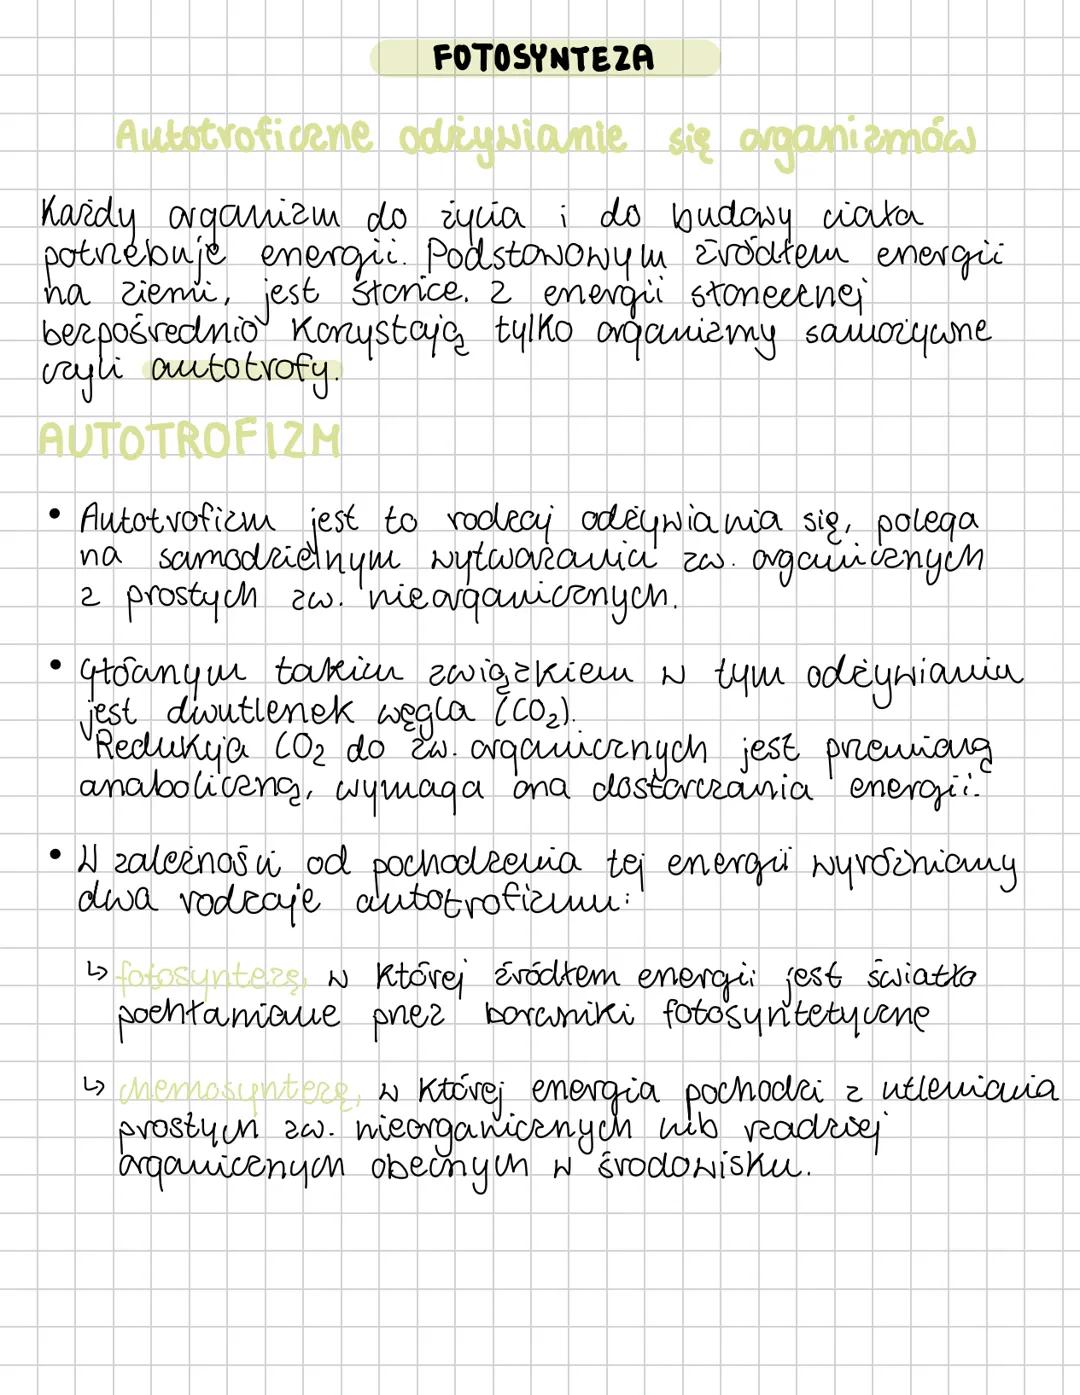 FOTOSYNTEZA
Autotroficzne odżywianie się organizmów
Każdy organizm do życia i do budowy ciała
potrzebuje energii. Podstawowym źródłem energii
na ziemi, jest słońce. Z energii słonecznej
bezpośrednio korzystają tylko organizmy samożywne
czyli autotrofy.
AUTOTROFIZM
• Autotrofizm jest to rodzaj odżywiania się, polega
na samodzielnym wytwarzaniu zw. organicznych
z prostych zw. nieorganicznych.
• Głównym takim związkiem w tym odżywianiu
jest dwutlenek węgla (CO₂).
Redukcja CO₂ do zw. organicznych jest przemianą
anaboliczną, wymaga ona dostarczania energii.
• W zależności od pochodzenia tej energii wyróżniamy
dwa rodzaje autotrofizmu:
↳ fotosyntezę, w której źródłem energii jest światło
pochłaniane przez barwniki fotosyntetyczne
↳ chemosyntezę, w której energia pochodzi z utleniania
prostych zw. nieorganicznych lub rzadziej
organicznych obecnych w środowisku.